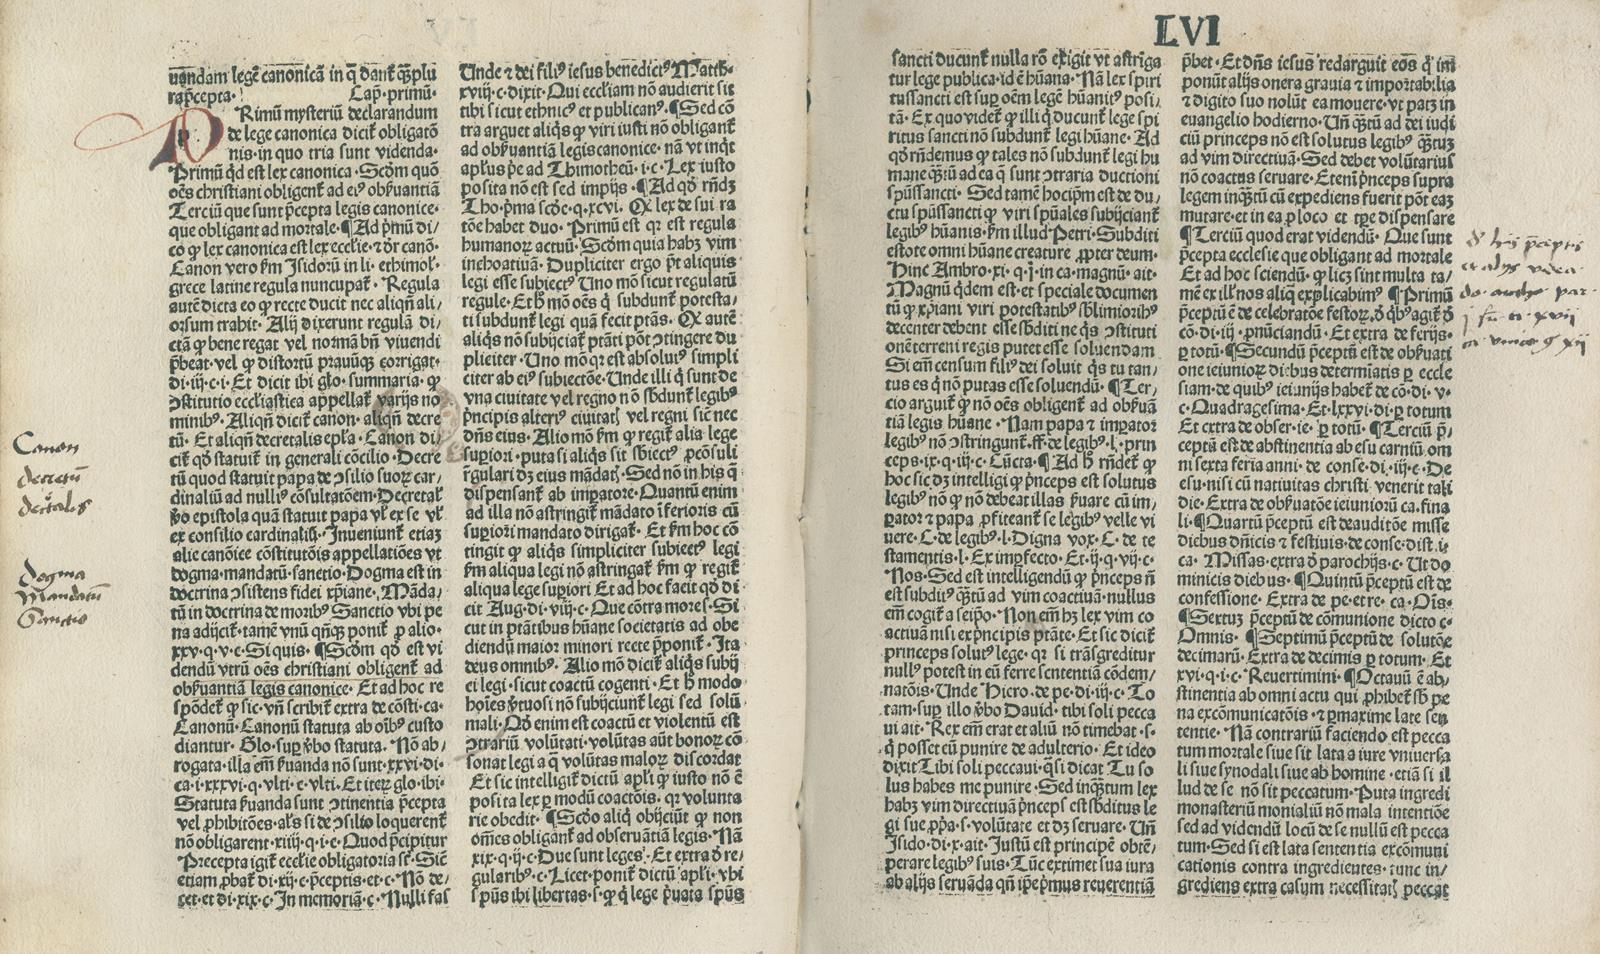 LVI
uandam legē canonicā in q̄ dant̄ q̄ȝplu
rap̄cepta· Cap̄· primū·
PRimū mysteriū declarandum
de lege canonica dicit̄ obligatō
nis· in quo tria sunt videnda·
Primū qd̄ est lex canonica· Scd̄m quō
oēs christiani obligent̄ ad eiꝰ obẜuantiā
Terciū que sunt p̄cepta legis canonice·
que obligant ad mortale· ¶Ad p̄mū di/
co ꝙ lex canonica est lex eccl̄ie· ⁊ dr̄ canō·
Canon vero ẜm Isidorū in li· ethimol̄·
grece latine regula nuncupat̄· Regula
autē dicta eo ꝙ recte ducit nec aliqn̄ ali/
orsum trahit· Alij dixerunt regulā di/
ctā ꝙ bene regat vel normā bn̄ viuendi
p̄beat· vel ꝙ distortū prauūqꝫ corrigat·
di· iij· c· i· Et dicit ibi glo· summaria· ꝙ
ↄstitutio eccl̄iastica appellat̄ varijs no
minibꝰ· Aliqn̄ dicit̄ canon· aliqn̄ decre
tū· Et aliqn̄ decretalis ep̄l̄a· Canon di/
cit̄ qd̄ statuit̄ in generali cōcilio· Decre
tū quod statuit papa de ↄsilio suoꝝ car/
dinaliū ad nulliꝰ cōsultatōem· Decretal̄
ꝟo epistola quā statuit papa vl̄ ex se vl̄
ex consilio cardinaliū· Inueniunt̄ etiaꝫ
alie canōice cōstitutōis appellatiōes vt
dogma· mandatū· sanctio· Dogma est in
doctrina ↄsistens fidei xp̄iane· Māda/
tū in doctrina de moribꝰ Sanctio vbi pe
na adijcit̄· tamē vnū qn̄qꝫ ponit̄ ꝓ alio·
xxv· q· v· c· Si quis· ¶Scd̄m qd̄ est vi
dendū vtrū oēs christiani obligent̄ ad
obẜuantiā legis canonice· Et ad hoc re
spōdet̄ ꝙ sic· vn̄ scribit̄ extra de cōsti· ca·
Canonū· Canonū statuta ab oībꝰ custo
diantur· Glo· suꝑ ꝟbo statuta· Nō ab/
rogata· illa em̄ ẜuanda nō sunt· xxvi· di·
ca· i· xxxvi· q· vlti· c· vlti· Et iteꝝ glo· ibi·
Statuta ẜuanda sunt ↄtinentia p̄cepta
vel ꝓhibitōes· al̄s si de ↄsilio loquerent̄
nō obligarent· xiiij· q· i· c· Quod p̄cipitur
Precepta igit̄ eccl̄ie obligatoria st̄· Sic̄
etiam ꝓbat̄ di· xij· c· p̄ceptis· et· c· Nō de/
cet· et di· xix· c· In memoriā· c· Nulli fas
Unde ⁊ dei filiꝰ iesus benedictꝰ Matth·
xviij· c· dixit· Qui eccl̄iam nō audierit sit
tibi sicut ethnicꝰ et publicanꝰ· ¶Sed cō
tra arguet aliq̄s ꝙ viri iusti nō obligant̄
ad obẜuantiā legis canonice· nā vt inq̇t
apl̄us p̄e ad Thimotheū· i· c· Lex iusto
posita nō est sed impijs· ¶Ad qd̄ rn̄dꝫ
Tho· p̄ma scd̄e· q· xcvi· Qꝫ lex de sui ra
tōe habet duo· Primū est qꝛ est regula
humanoꝝ actuū· Scd̄m quia habꝫ vim
inchoatiuā· Dupliciter ergo p̄t aliquis
legi esse subiectꝰ Uno mō sicut regulatū
regule· Et h̄ mō oēs q̇ subdunt̄ potesta/
ti subdunt̄ legi quā fecit p̄tās· Qꝫ autē
aliq̄s nō subijciat̄ p̄tāti pōt ↄtingere du
pliciter· Uno mō qꝛ est absolutꝰ simpli
citer ab eiꝰ subiectōe· Unde illi q̇ sunt de
vna ciuitate vel regno nō sb̄dunt̄ legibꝰ
p̄ncipis alteriꝰ ciuitatꝭ vel regni sic̄ nec
dn̄s eius· Alio mō ẜm ꝙ regit̄ alia lege
suꝑiori· puta si aliq̄s sit sb̄iectꝰ ꝓcōsuli
r̄gulari dꝫ eius mādatꝭ· Sed nō in his q̄
dispensant̄ ab imꝑatore· Quantū enim
ad illa nō astringit̄ mādato īferioris cū
suꝑiori mandato dirigat̄· Et ẜm hoc cō
tingit ꝙ aliq̄s simpliciter subiectꝰ legi
ẜm aliqua legi nō astringat̄ ẜm ꝙ regit̄
aliqua lege suꝑiori Et ad hoc facit qd̄ di
cit Aug· di· viij· c· Que cōtra mores· Si
cut in p̄tātibus hūane societatis ad obe
diendū maior minori recte p̄ponit̄· Ita
deus omnibꝰ· Alio mō dicit̄ aliq̄s subij
ci legi· sicut coactū cogenti· Et h̄ modo
hoīes ꝟtuosi nō subijciunt̄ legi sed solū
mali· Qd̄ enim est coactū et violentū est
ↄtrariū volūtati· volūtas aūt bonoꝝ cō
sonat legi a q̄ volūtas maloꝝ discordat
Et sic intelligit̄ dictū apl̄i ꝙ iusto nō ē
posita lex ꝑ modū coactōis· qꝛ volunta
rie obedit· ¶Scd̄o aliq̇ obijciūt ꝙ non
om̄es obligant̄ ad obseruātiā legis· Nā
xix· q· ij· c· Due sunt leges· Et extra ð re/
gularibꝰ· c· Licet· ponit̄ dictū apl̄i· vbi
sp̄ūs ibi libertas· s· ꝙ q̇ lege p̄uata sp̄ūs
sancti ducunt̄ nulla rō exigit vt astrīga
tur lege publica· id ē hūana· Nā lex spiri
tussancti est suꝑ oēm legē hūanitꝰ posi/
tā· Ex quo videt̄ ꝙ illi q̇ ducunt̄ lege spi
ritus sancti nō subdunt̄ legi hūane· Ad
qd̄ rn̄demus ꝙ tales nō subdunt̄ legi hu
mane q̄ȝtū ad ea q̄ sunt ↄtraria ductioni
sp̄ūssancti· Sed tamē hocip̄m est de du/
ctu sp̄ūssancti ꝙ viri sp̄ūales subijciant̄
legibꝰ hūanis· ẜm illud Petri· Subditi
estote omni hūane creature ꝓpter deum·
Hinc Ambro· xi· q· i· in ca· magnū· ait·
Magnū q̇dem est· et speciale documen
tū ꝙ xp̄iani viri potestatibꝰ sb̄limioribꝰ
decenter debent esse sb̄diti ne q̇s ↄstituti
onē terreni regis putet esse soluendam
Si em̄ censum filiꝰ dei soluit q̇s tu tan/
tus es q̇ nō putas esse soluendū· ¶Ter/
cio arguit̄ ꝙ nō oēs obligent̄ ad obẜuā
tiā legis hūane· Nam papa ⁊ imꝑator
legibꝰ nō ↄstringunt̄· ff· de legibꝰ· l· prin
ceps· ix· q· iij· c· Cūcta· ¶Ad h̄ rn̄det̄ ꝙ
hoc sic dꝫ intelligi ꝙ p̄nceps est solutus
legibꝰ nō ꝙ nō debeat illas ẜuare cū im/
ꝑator ⁊ papa ꝓfiteant̄ se legibꝰ velle vi
uere· C· de legibꝰ· l· Digna vox· C· de te
stamentis· l· Ex imꝑfecto· Et· ij· q· vij· c·
Nos· Sed est intelligendū ꝙ p̄nceps nō
est subditꝰ q̄ȝtū ad vim coactiuam· nullus
em̄ cogit̄ a seip̄o· Non em̄ hꝫ lex vim co
actiuā nisi ex p̄ncipis p̄tāte· Et sic dicit̄
princeps solutꝰ lege· qꝛ si trāsgreditur
nullꝰ potest in eū ferre sententiā cōdem/
natōis· Unde Hiero· de pe· di· iij· c· To
tam· suꝑ illo ꝟbo Dauid· tibi soli pecca
ui ait· Rex em̄ erat et aliū nō timebat· s·
q̇ posset eū punire de adulterio· Et ideo
dixit Tibi soli peccaui· q̄si dicat Tu so
lus habes me punire· Sed inq̄ȝtum lex
habꝫ vim directiuā p̄nceps est sb̄ditus le
gi sue ꝓp̄a· s· volūtate et dꝫ seruare· Un̄
Isido· di· x· ait· Justū est principē obtē/
perare legibꝰ suis· Tūc extimet sua iura
ab alijs seruāda qn̄ ip̄e p̄mus reuerentiā
p̄bet· Et dn̄s iesus redarguit eos q̇ im̄
ponūt alijs onera grauia ⁊ importabilia
⁊ digito suo nolūt ea mouere· vt patꝫ in
euangelio hodierno· Un̄ q̄ȝtū ad dei iudi
ciū princeps nō est solutus legibꝰ q̄ȝtuꝫ
ad vim directiuā· Sed debet volūtarius
nō coactus seruare· Eteni p̄nceps supra
legem inq̄ȝtū cū expediens fuerit pōt eaꝫ
mutare· et in ea ꝓ loco et tp̄e dispensare
¶Terciū quod erat videndū· Que sunt
p̄cepta ecclesie que obligant ad mortale
Et ad hoc sciendū· ꝙ licꝫ sint multa ta/
mē ex ill̄ nos aliq̄ explicabimꝰ ¶Primū
p̄ceptū ē de celebratōe festoꝝ· ð q̇bꝰ agit̄ ð
cō· di· iij· ꝓnūciandū· Et extra de ferijs·
ꝑ totū· ¶Secundū p̄ceptū est de obẜuati
one ieiunioꝝ diebus determīatis ꝑ eccle
siam· de quibꝰ ieiunijs habet̄ de cō· di· v·
c· Quadragesima· Et· lxxvi· di· ꝑ totum
Et extra de obser· ie· ꝑ totū· ¶Terciū p̄/
ceptū est de abstinentia ab esu carniū om
ni sexta feria anni· de conse· di· iij· c· De
esu· nisi cū nativitas christi venerit tali
die· Extra de obẜuatōe ieiuniorū ca· fina
li· ¶Quartū p̄ceptū est de auditōe misse
diebus dn̄icis ⁊ festiuis· de conse· dist· i·
ca· Missas· extra ð parochijs· c· Ut do
minicis diebus· ¶Quintū p̄ceptū est de
confessione· Extra de pe· et re· ca· Oīs·
¶Sextuꝫ p̄ceptū de cōmunione dicto c·
Omnis· ¶Septimū p̄ceptū de solutōe
decimarū· Extra de decimis ꝑ totum· Et
xvi· q· i· c· Reuertimini· ¶Octauū ē ab/
stinentia ab omni actu qui ꝓhibet̄ sb̄ pe
na excōmunicatōis· ⁊ ꝑmaxime late sen
tentie· Nā contrariū faciendo est pecca
tum mortale siue sit lata a iure vniuersa
li siue synodali siue ab homine· etiā si il
lud de se nō sit peccatum· Puta ingredi
monasteriū monialiū nō mala intentiōe
sed ad videndū locū de se nullū est pecca
tum· Sed si est lata sententia excōmuni
cationis contra ingredientes· tunc in/
grediens extra casum necessitatꝭ peccat
Canon
decretū
decretalis
dogma
Mandatū
Sanctio